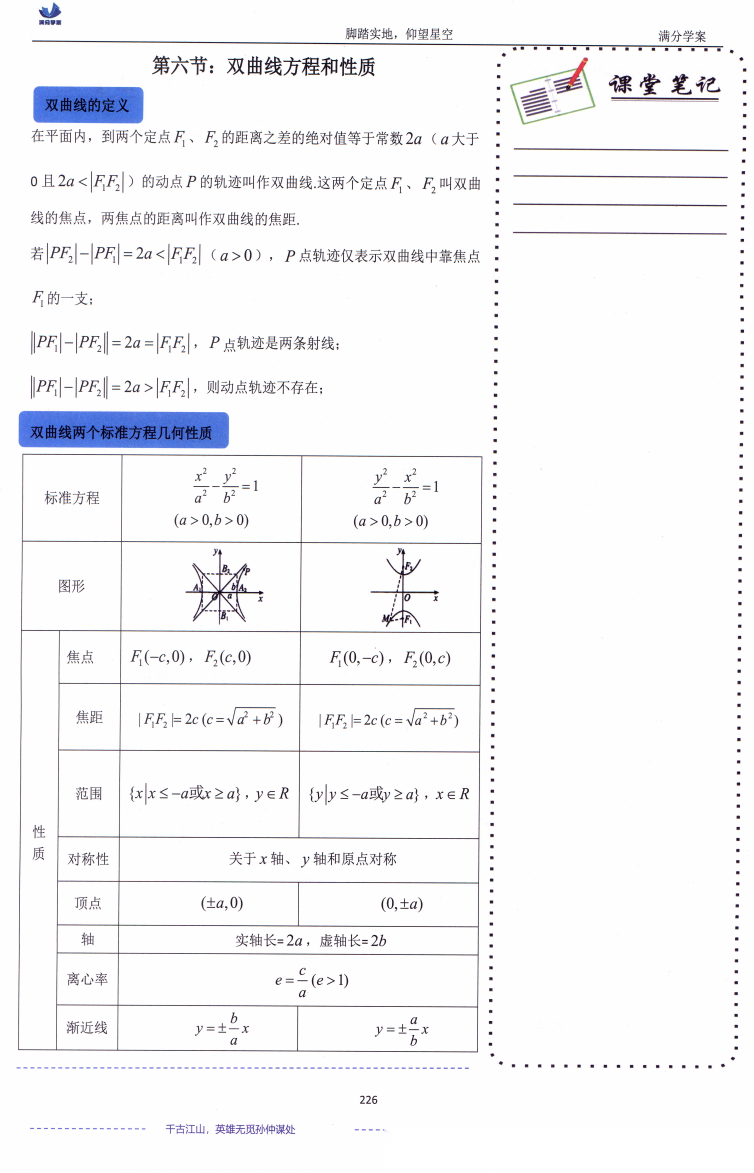 满分学案
脚踏实地，仰望星空
满分学案
第六节：双曲线方程和性质
课堂笔记
双曲线的定义
在平面内，到两个定点 F₁、F₂ 的距离之差的绝对值等于常数 2a（a 大于
0 且 2a < |F₁F₂|）的动点 P 的轨迹叫作双曲线.这两个定点 F₁、F₂ 叫双曲
线的焦点，两焦点的距离叫作双曲线的焦距.
若 |PF₂| − |PF₁| = 2a < |F₁F₂|（a > 0），P 点轨迹仅表示双曲线中靠焦点
F₁ 的一支；
||PF₁| − |PF₂|| = 2a = |F₁F₂|，P 点轨迹是两条射线；
||PF₁| − |PF₂|| = 2a > |F₁F₂|，则动点轨迹不存在；
双曲线两个标准方程几何性质
标准方程
x²/a² − y²/b² = 1
(a > 0, b > 0)
y²/a² − x²/b² = 1
(a > 0, b > 0)
图形
y B₂ P A₁ b A₂ O a x B₁
y F₂ O x M F₁
性质
焦点 F₁(−c,0)，F₂(c,0) F₁(0,−c)，F₂(0,c)
焦距 |F₁F₂|= 2c (c = √(a² + b²)) |F₁F₂|= 2c (c = √(a² + b²))
范围 {x|x ≤ −a或x ≥ a}，y ∈ R {y|y ≤ −a或y ≥ a}，x ∈ R
对称性 关于 x 轴、y 轴和原点对称
顶点 (±a,0) (0,±a)
轴 实轴长= 2a，虚轴长= 2b
离心率 e = c/a (e > 1)
渐近线 y = ± b/a x y = ± a/b x
226
千古江山，英雄无觅孙仲谋处